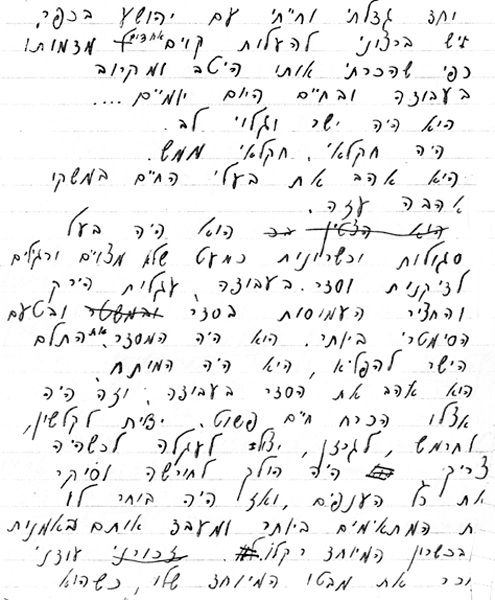 יחד גדלתי וחייתי עם יהושע בכפר,
ויש ברצוני להעלות קוים אחדים מדמותו
כפי שהכרתי אותו היטב ומקרוב
בעבודה ובחיים היום יומיים ....
הוא היה ישר וגלוי לב.
היה חקלאי. חקלאי ממש.
היא אהב את בעלי החיים במשקו
אהבה עזה.
הוא הצטיין בכ הוא היה בעל
סגולות וכשרונות כמעט שלא מצויים ורגילים
לדיקנות וסדר. בעבודה עגלות הירק
והחציר העמוסות בסדר ובמשטר ובטעם
הסימטרי ביותר. הוא היה המסדר את התלם
הישר להפליא, היא היה המותח.
הוא אהב את הסדר בעבודה. וזה היה
אצלו הכרח חיים פשוט. ידית לקלשון,
וחרמש, לגרזן, יצול לעגלה לכשהיה
צריך היה הולך לחורשה וסוקר
את כל הענפים, ואז היה בוחר לו
ת המתאימים ביותר ומעבד אותם באמנית
ובכשרון המיוחד רק לו. זכורני עודני
זכר את מבטו המיוחד שלו, כשהוא